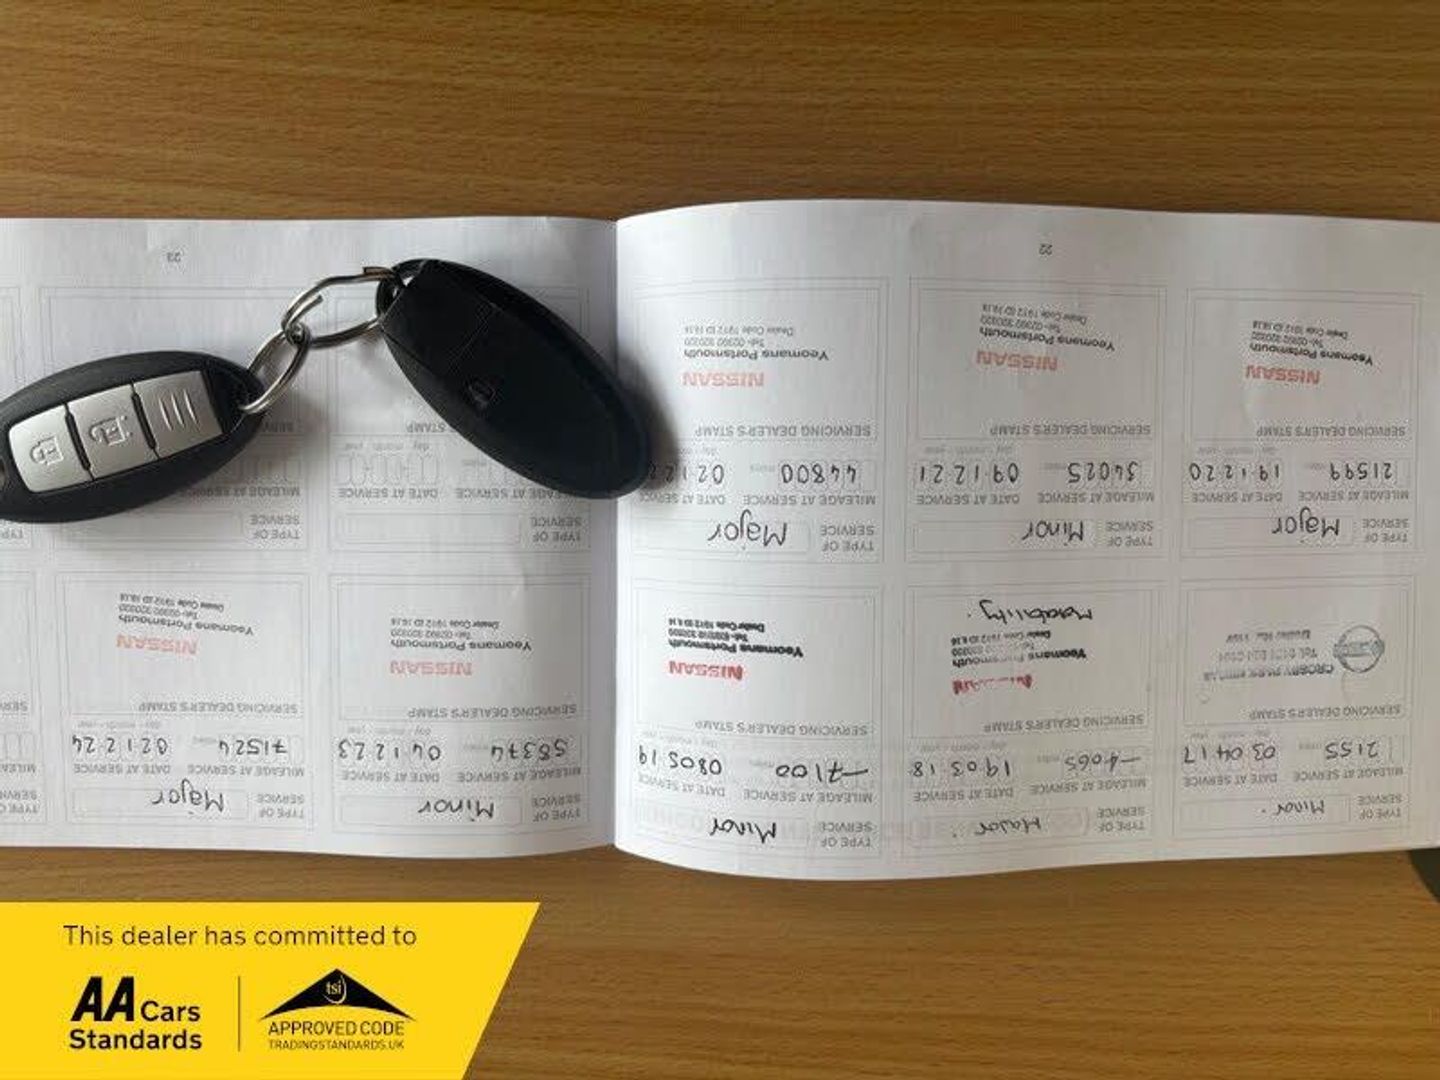 TYPE OF SERVICE Minor
MILEAGE AT SERVICE DATE AT SERVICE
2155 miles 03 04 17
day month year
SERVICING DEALER'S STAMP
TYPE OF SERVICE Major
MILEAGE AT SERVICE DATE AT SERVICE
-4065 miles 19 03 18
day month year
SERVICING DEALER'S STAMP
NISSAN
Yeomans Portsmouth
Motability.
TYPE OF SERVICE Minor
MILEAGE AT SERVICE DATE AT SERVICE
-7100 08 05 19
day month year
SERVICING DEALER'S STAMP
NISSAN
Yeomans Portsmouth
Tel:- 02392 320320
TYPE OF SERVICE Major
MILEAGE AT SERVICE DATE AT SERVICE
21599 miles 19 12 20
day month year
SERVICING DEALER'S STAMP
NISSAN
Yeomans Portsmouth
Tel:- 02392 320320
Dealer Code 1912 ID 16.16
TYPE OF SERVICE Minor
MILEAGE AT SERVICE DATE AT SERVICE
34025 miles 09 12 21
day month year
SERVICING DEALER'S STAMP
NISSAN
Yeomans Portsmouth
Tel:- 02392 320320
Dealer Code 1912 ID 16.16
TYPE OF SERVICE Major
MILEAGE AT SERVICE DATE AT SERVICE
44800 miles 02 12 2
day
SERVICING DEALER'S STAMP
NISSAN
Yeomans Portsmouth
Tel:- 02392 320320
Dealer Code 1912 ID 16.16
22
TYPE OF SERVICE Minor
MILEAGE AT SERVICE DATE AT SERVICE
58374 miles 04 12 23
day month year
SERVICING DEALER'S STAMP
NISSAN
Yeomans Portsmouth
Tel:- 02392 320320
Dealer Code 1912 ID 16.16
TYPE OF SERVICE Major
MILEAGE AT SERVICE DATE AT SERVICE
71524 miles 02 12 24
day month year
SERVICING DEALER'S STAMP
NISSAN
Yeomans Portsmouth
Tel:- 02392 320320
Dealer Code 1912 ID 16.16
TYPE OF SERVICE
MILEAGE AT SERVICE DATE AT SERVICE
day month year
TYPE OF SERVICE
MILEAGE AT SERVICE
23
This dealer has committed to
AA Cars
Standards
tsi
APPROVED CODE
TRADINGSTANDARDS.UK